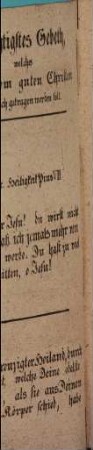 tigstes Gebeth,
welches
om guten Christen
ch getragen werden soll.
r. Heiligkeit Pius VII
r Jesu! du wirst mich
aß ich jemals mehr von
werde. Du hast zu viel
litten, o Jesu!
eranzigter Heiland, durch
t welche Deine
als sie aus Deinem
Körper schied, habe